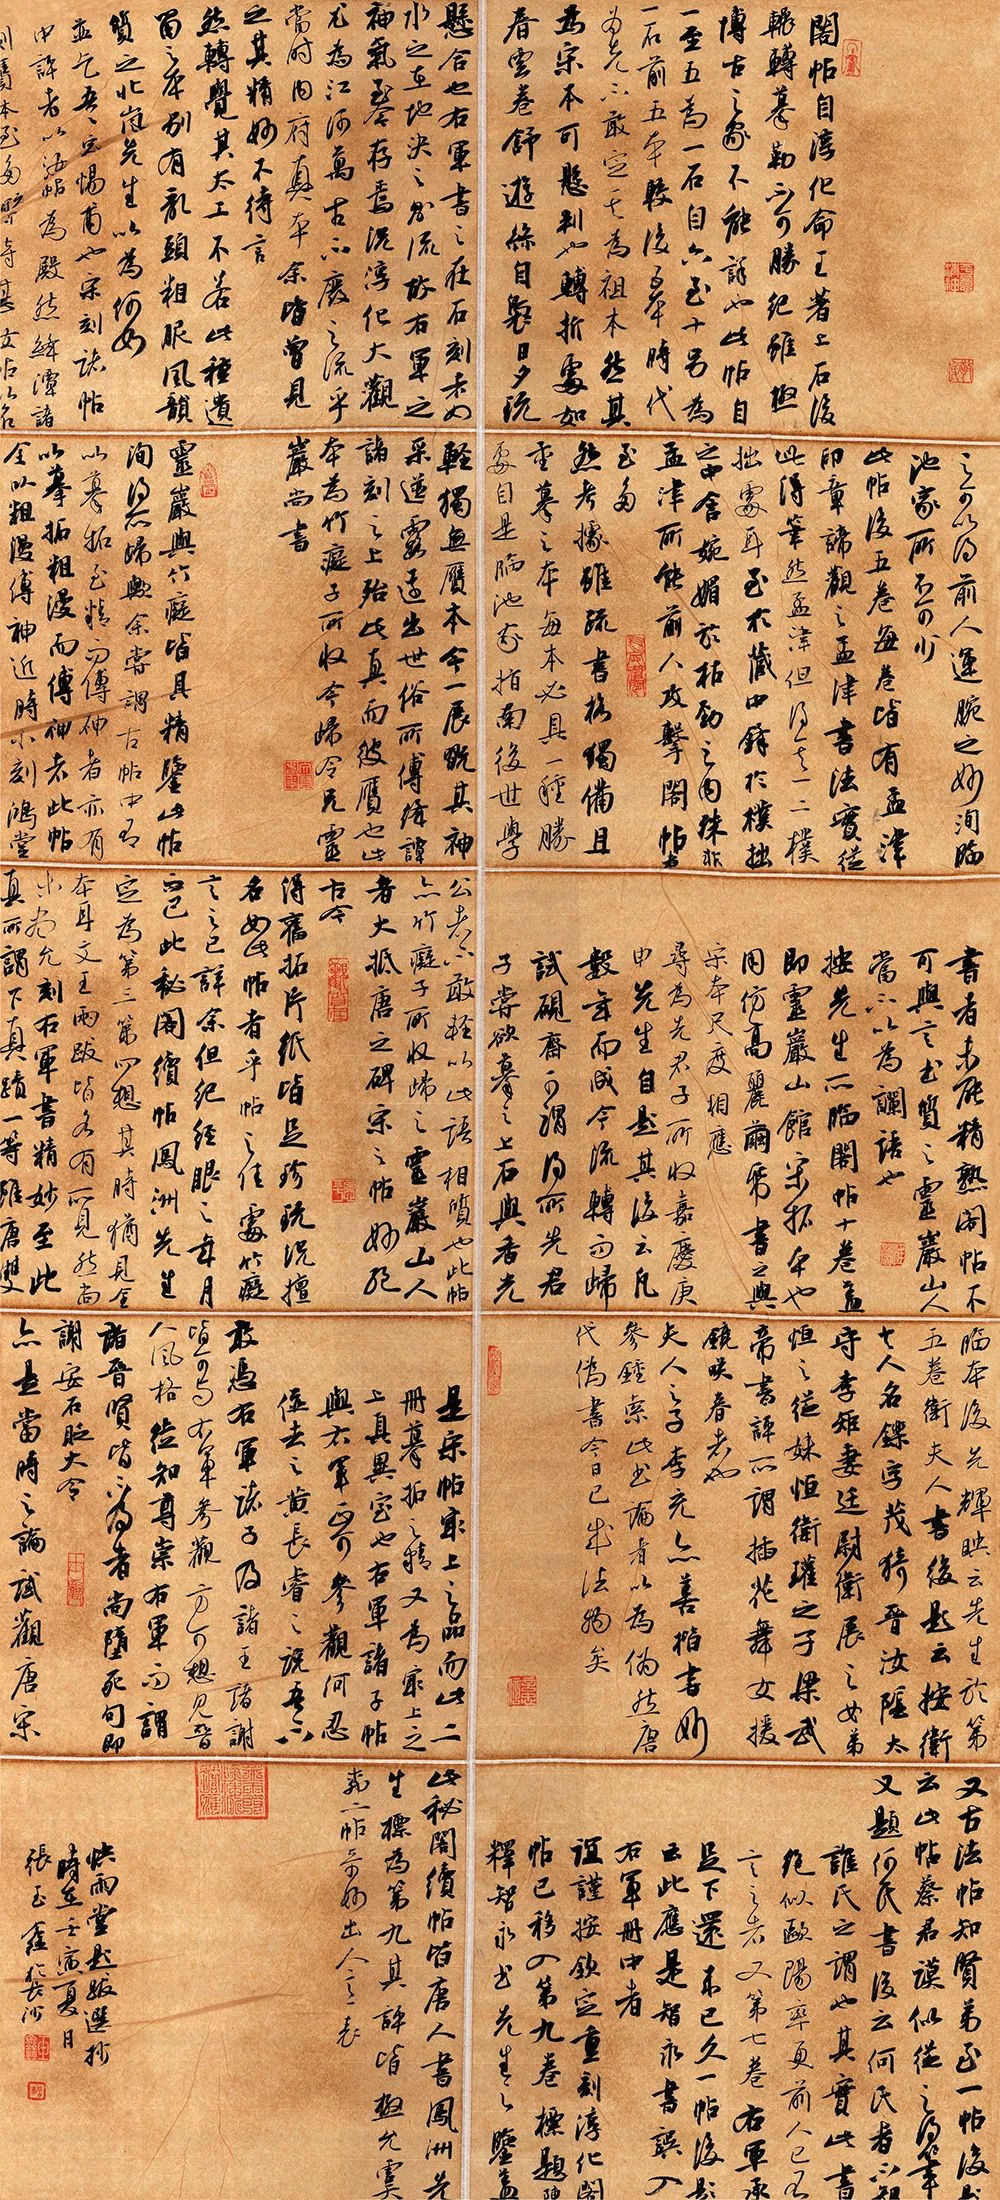 閣帖自淳化命王著上石後
輾轉摹勒不可勝紀雖極
博古之家不能詳也此帖自
一至五為一石自六至十另為
一石前五本較後五本時代
為先不敢定其為祖本然其
為宋本可懸判也轉折處如
春雲卷舒遊絲自裊日夕玩
懸合也右軍書之在石刻亦如
水之在地決之則流故右軍之
神氣至今存焉況淳化大觀
尤為江河萬古不廢之流乎
當時內府真本余皆曾見
之其精妙不待言
然轉覺其太工不若此種遺
留之本別有亂頭粗服風韻
質之北崗先生以為何如
中評者以汝帖為殿然絳潭諸
之可以得前人運腕之妙洵臨
池家所不可少
此帖後五卷每卷皆有孟津
印章諦觀之孟津書法實從
此得筆然孟津但得其一二樸
拙處耳至於藏中鋒於樸拙
之中含婉媚於枯勁之內殊非
孟津所能前人攻擊閣帖者
至多
然考據雖疏書格獨備且
重摹之本每本必具一種勝
處自是臨池家指南後世學
輕獨無贋本今一展玩其神
采遒露迥出世俗所傳絳譚
諸刻之上殆此真而彼贋也此
本為竹癡子所收今歸令兄靈
巖尚書
靈巖與竹癡皆具精鑒此帖
洵得所歸歟余嘗謂古帖中有
以摹拓至精而傳神者亦有
以摹拓粗漫而傳神者此帖
全以粗漫傳神近時小刻鴻堂
書者未能精熟閣帖不
可與言書質之靈巖山人
當不以為讕語也
按先生所臨閣帖十卷蓋
即靈巖山館宋拓本也
用仿高麗繭紙書之與
宋本尺度相應
尋為先君子所收嘉慶庚
申先生自題其後云凡
數年而成今流轉而歸
試硯齋可謂得所先君
子嘗欲摹之上石與香光
公者不敢輕以此語相質也此帖
亦竹癡子所收歸之靈巖山人
者大抵唐之碑宋之帖妙絕
古今
得舊拓片紙皆足珍玩況擅
名如此帖者乎帖之佳處竹癡
言之已詳余但紀經眼之年月
而已此秘閣續帖鳳洲先生
定為第三第四想其時猶見全
本耳文王兩跋皆各有所見然尚
未為允刻右軍書精妙至此
真所謂下真蹟一等雖唐雙
臨本後先輝映云先生於第
五卷衛夫人書後題云按衛
夫人名鑠字茂猗晉汝陰太
守李矩妻廷尉衛展之女弟
恒之從妹恒衛瓘之子梁武
帝書評所謂插花舞女援
鏡咲春者也
夫人之子李充亦善楷書妙
參鍾索此書論者以為偽然唐
代偽書今日已成法物矣
是宋帖最上之品而此二
冊摹拓之精又為最上之
上真異寶也右軍諸子帖
與右軍正可參觀何忍
遽去之黃長睿之說吾不
敢憑右軍諸子及諸王諸謝
皆可與右軍參觀方可想見晉
人風格徒知尊崇右軍而謂
諸晉賢皆不為者尚墮死句即
謝安石貶大令
亦是當時之論試觀唐宋
又古法帖知賢弟至一帖後題
云此帖蔡君謨似從之得筆
又題何氏書後云何氏者不知
誰氏之謂也其實此書
絕似歐陽率更前人已有
言之者又第七卷右軍承
足下還來已久一帖後題
云此應是智永書誤入
右軍冊中者
誼謹按欽定重刻淳化閣
帖已移入第九卷標題陳
釋智永書先生之鑒蓋
此秘閣續帖皆唐人書鳳洲先
生標為第九其評皆極允虞
快雨堂題跋選抄
時在壬寅夏月
張玉鑫於長沙